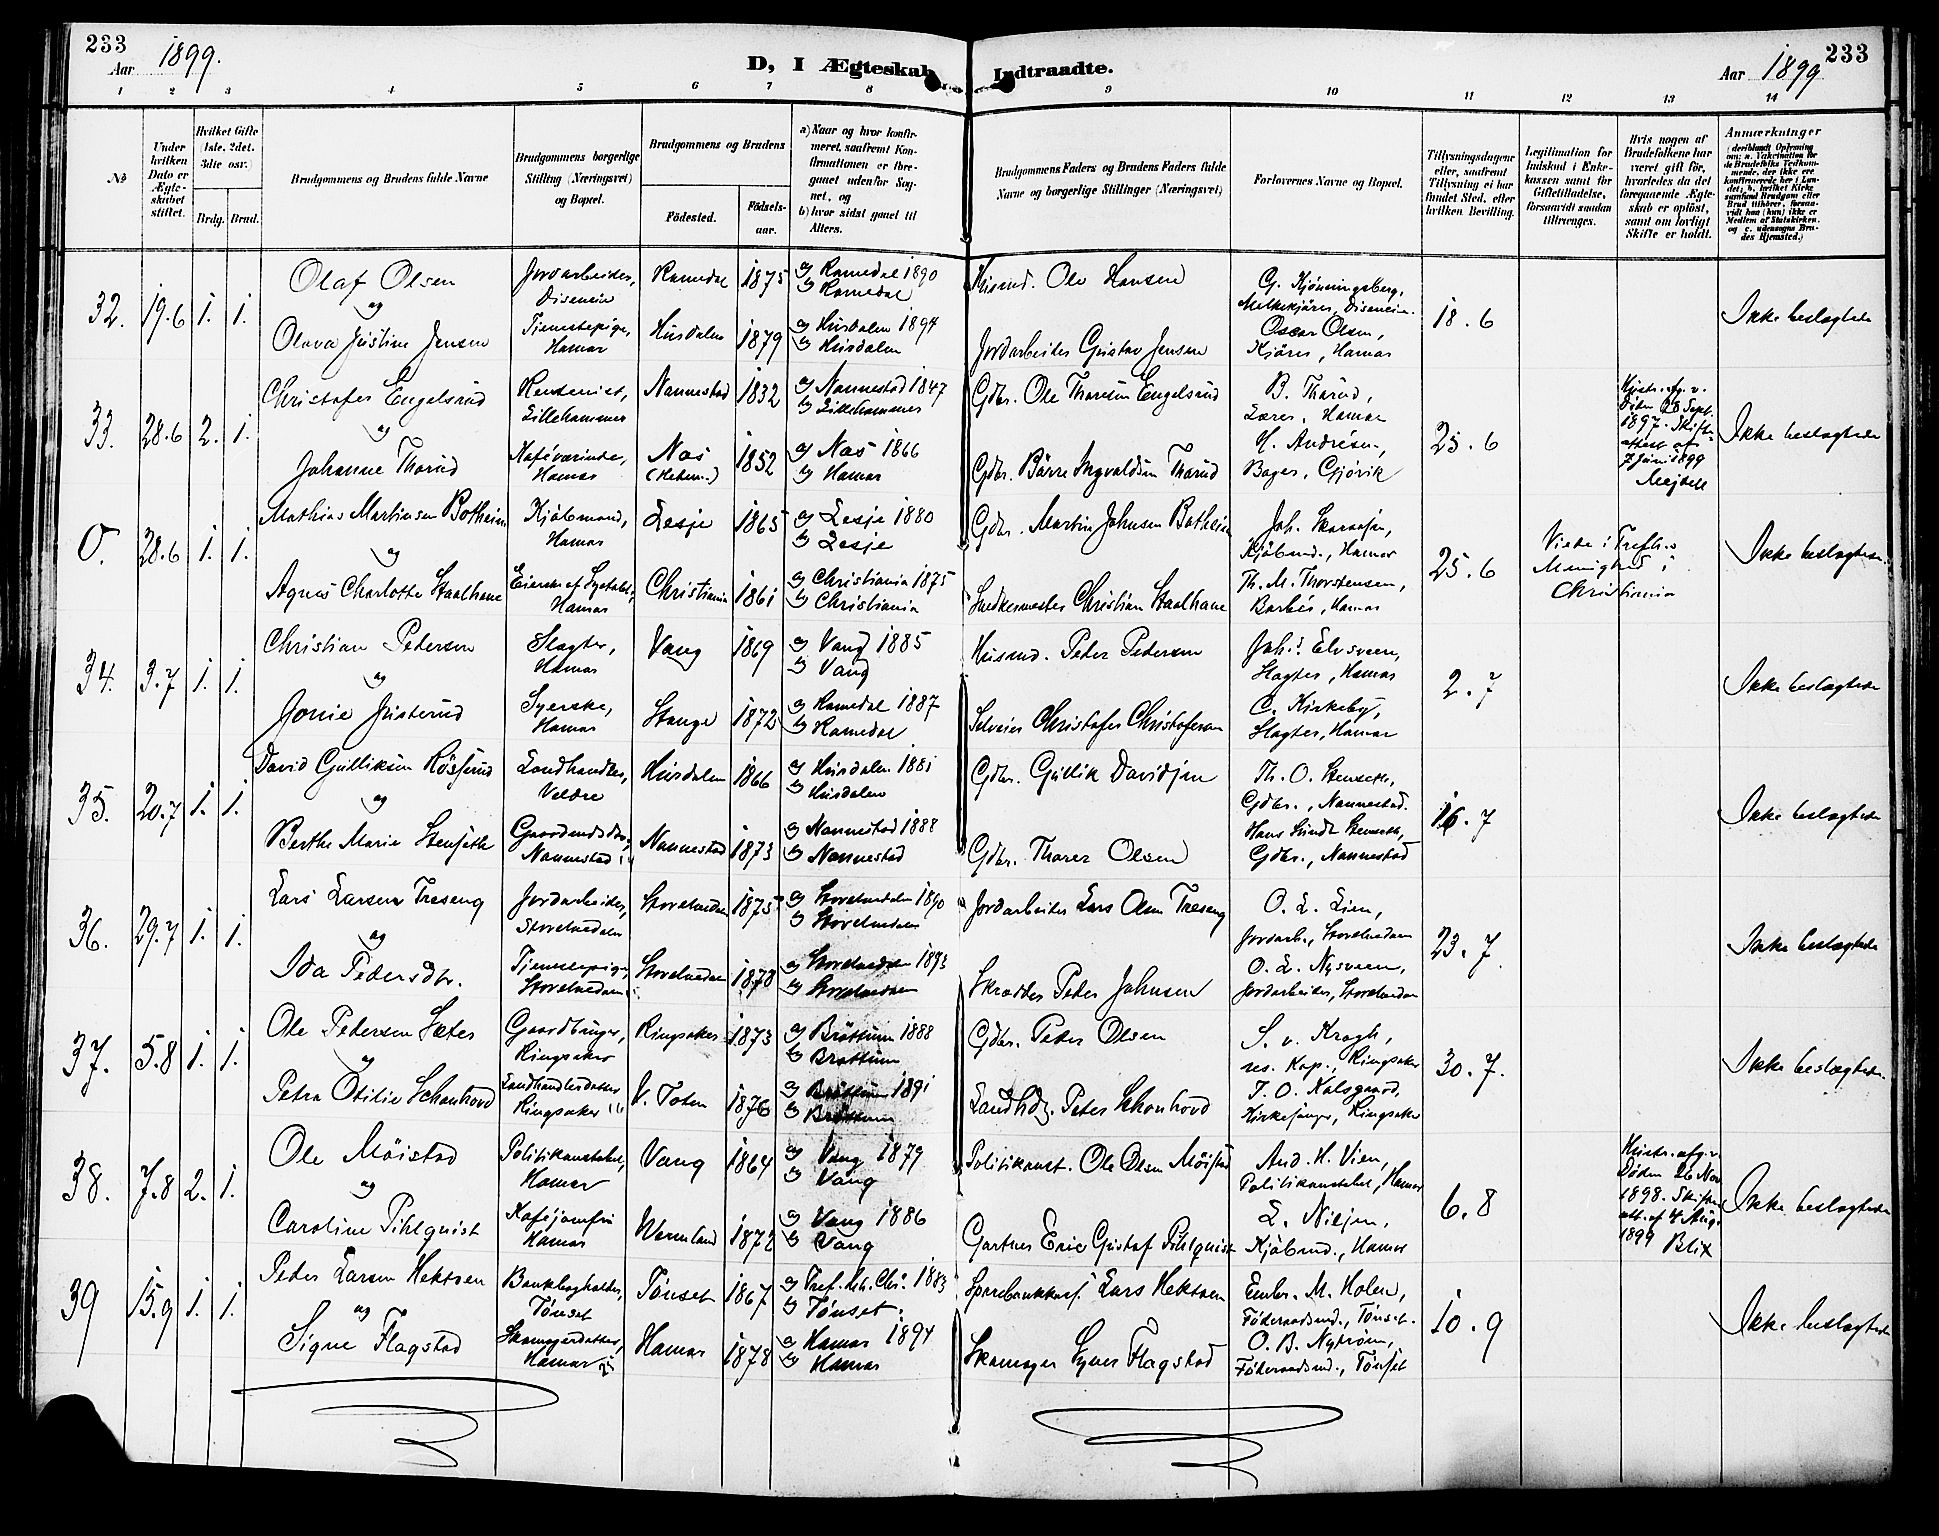 233
Aar 1899.
D, I Ægteskab Indtraadte.
Aar 1899
233
1 2 3 4 5 6 7 8 9 10 11 12 13 14
No
Under hvilken Dato er Ægteskabet stiftet.
Hvilket Gifte (1ste, 2det, 3die osv.)
Brdg. Brud.
Brudgommens og Brudens fulde Navne
Brudgommens borgerlige Stilling (Næringsvei) og Bopæl.
Brudgommens og Brudens
Fødested.
Fødselsaar.
a) Naar og hvor konfirmeret, saafremt Konfirmationen er foregaaet udenfor Sognet, og
b) hvor sidst gaaet til Alters.
Brudgommens Faders og Brudens Faders fulde Navne og borgerlige Stillinger (Næringsvei)
Forlovernes Navne og Bopæl.
Tillysningsdagene eller, saafremt Tillysning ei har fundet Sted, efter hvilken Bevilling.
Legitimation for Indskud i Enkekassen samt for Giftetilladelse, forsaavidt saadan tiltrænges.
Hvis nogen af Brudefolkene har været gift før, hvorledes da det foregaaende Ægteskab er opløst, samt om lovligt Skifte er holdt.
Anmærkninger
32. 19.6 1. 1.
Olaf Olsen
og
Olava Justine Jensen
Jordarbeider, Disenein
Tjenestepige, Hamar
Romedal 1875
Husdalen 1879
a) Romedal 1890
b) Romedal
a) Husdalen 1894
b) Husdalen
Husmd. Ole Hansen
Jordarbeider Gustav Jensen
G. Kjønningsberg,
Melkekjører, Disenein.
Oscar Olsen,
Kjører, Hamar
18.6
Ikke beslægtede
33. 28.6 2. 1.
Christofer Engelsrud
og
Johanne Thorud
Rentenist, Lillehammer
Kaféværtinde, Hamar
Nannestad 1832
Næs (Hedem.) 1852
a) Nannestad 1847
b) Lillehammer
a) Næs 1866
b) Hamar
Gdbr. Ole Thoresen Engelsrud
Gdbr. Børre Ingvaldsen Thorud
B. Thorud,
Lærer, Hamar
H. Andrésen,
Bager, Gjøvik
25.6
Hustr. afg. v. Døden 28 Sept. 1897. Skifteattest af 7 Juni 1899 Mejdell
Ikke beslægtede
0. 28.6 1. 1.
Mathias Martinsen Botheim
og
Agnes Charlotte Staalhane
Kjøbmand, Hamar
Hamar
Lesje 1865
Christiania 1861
a) Lesje 1880
b) Lesje
a) Christiania 1875
b) Christiania
Gdbr. Martin Johnsen Botheim
Snedkermester Christian Staalhane
Joh.
Kjøbmd., Hamar
Th. M. Thorstensen,
Barbér, Hamar
25.6
Viede i Trefh.s Menighed i Christiania
Ikke beslægtede.
34. 3.7 1. 1.
Christian Pedersen
og
Josie Justerud
Slagter, Hamar
Syerske, Hamar
Vang 1869
Stange 1872
a) Vang 1885
b) Vang
a) Romedal 1887
b) Romedal
Husmd. Peter Pedersen
Selveier Christofer Christofersen
Joh.s Elvsveen,
Slagter, Hamar
C. Kirkeby,
Slagter, Hamar
2.7
Ikke beslægtede
35. 20.7 1. 1.
David Gulliksen Røsserud
og
Berthe Marie Stenseth
Landhandler, Veldre
Gaardmdsdtr., Nannestad
Husdalen 1866
Nannestad 1873
a) Husdalen 1881
b) Husdalen
a) Nannestad 1888
b) Nannestad
Gdbr. Gullik Davidsen
Gdbr. Thorer Olsen
Th. O. Stenseth,
Gdbr., Nannestad.
Hans Lundt Stenseth,
Gdbr., Nannestad
16.7
Ikke beslægtede
36. 29.7 1. 1.
Lars Larsen Treseng
og
Ida Pedersdtr.
Jordarbeider, Storelvedalen
Tjenestepige, Storelvedalen
Storelvedalen 1875
Storelvedalen 1878
a) Storelvedalen 1890
b) Storelvedalen
a) Storelvedalen 1893
b) Storelvedalen
Jordarbeider Lars Olsen Treseng
Skrædder Peder Johnsen
O. L. Lien,
Jordarb., Storelvedalen
O. L. Nysveen,
Jordarbeider, Storelvedalen
23.7.
Ikke beslægtede
37. 5.8 1. 1.
Ole Pedersen Sæter
og
Petra Otilie Schonhovd
Gaardbruger, Ringsaker
Landhandlerdatter, Ringsaker
Ringsaker 1873
V. Toten 1876
a) Brøttum 1888
b) Brøttum
a) Brøttum 1891
b) Brøttum
Gdbr. Peder Olsen
Landhdl. Peter Schonhovd
S. v. Krogh,
res. Kap., Ringsaker
T. O. Kalsgaard,
Kirkesanger, Ringsaker
30.7.
Ikke beslægtede.
38. 7.8 2. 1.
Ole Møistad
og
Caroline Pihlquist
Politikonstabel, Hamar
Kaféjomfru Hamar
Vang 1864
Wermland 1872
a) Vang 1879
b) Vang
a) Vang 1886
b) Vang
Politikonst. Ole Olsen Møistad
Gartner Eric Gustaf Pihlquist
And. H. Vien,
Politikonstabel, Hamar
L. Nilsen,
Kjøbmd., Hamar
6.8
Hustr. afg. v. Døden 26 Nov 1898. Skifteatt. af 4 Aug. 1899 Blix
Ikke beslægtede
39 15.9 1. 1.
Peder Larsen Hektoen
og
Signe Flagstad
Bankbogholder, Tønset
Skomagerdatter, Hamar
Tønset 1867
Hamar 1878
a) Tref. Kh. Chr. 1883
b) Tønset.
a) Hamar 1894
b) Hamar
Sparebankkas. Lars Hektoen
Skomager Syver Flagstad
Embr. M. Holen,
Føderaadsmd., Tønset.
O. B. Nytrøen,
Føderaadsmd., Tønset
10.9
Ikke beslægtede